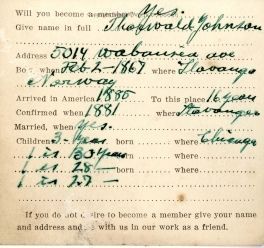 Will you become a member Yes.
Give name in full Thorwald Johnson
Address 5014 Wabansia ave
Born Feb 2 - 1867 where Stavanger
Norway
Arrived in America 1886 To this place 16 years
Confirmed when 1881 where Stavanger
Married, when Yes.
Children 3 - years born where Chicago
1 is 30 years born where
1 is 28 born where
1 is 27 born where
If you do not desire to become a member give your name
and address and with us in our work as a friend.